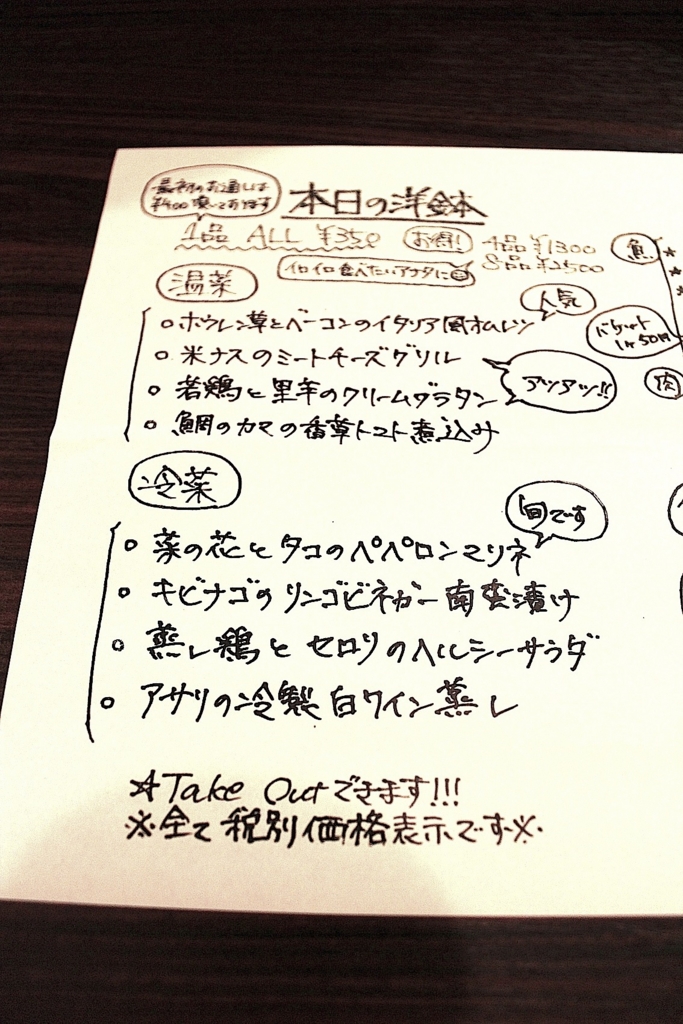 最初のお通しは
¥400頂いております
本日の洋鉢
1品 ALL ¥350
お得!
4品 ¥1300
8品 ¥2500
イロイロ食べたいアナタに
温菜
人気
ホウレン草とベーコンのイタリア風オムレツ
米ナスのミートチーズグリル
アツアツ!!
若鶏と里芋のクリームグラタン
鯛のカマの香草トマト煮込み
冷菜
旬です
菜の花とタコのペペロンマリネ
キビナゴのリンゴビネガー南蛮漬け
蒸し鶏とセロリのヘルシーサラダ
アサリの冷製白ワイン蒸し
☆Take Outできます!!!
※全て税別価格表示です※
魚
バケット
1ヶ50円
肉